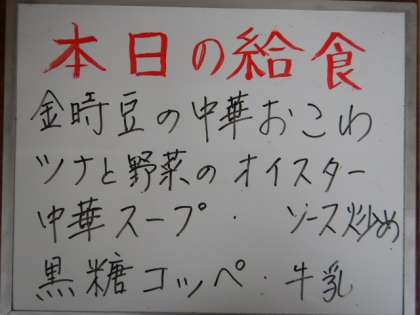 本日の給食
金時豆の中華おこわ
ツナと野菜のオイスター
中華スープ・ ソース炒め
黒糖コッペ・牛乳